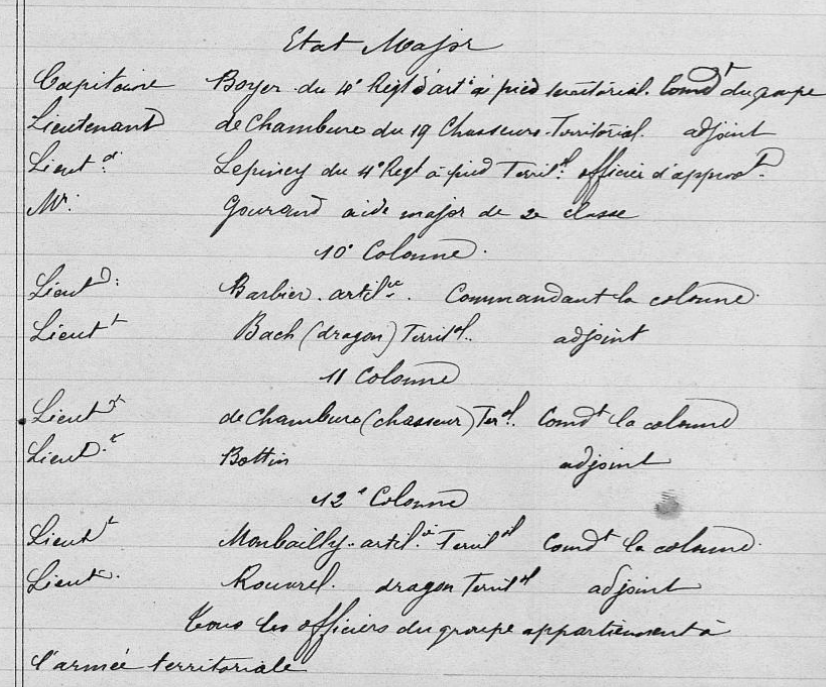 Etat Major
Capitaine Boyer du 4e Regt d'arte à pied territorial. Comdt du groupe
Lieutenant de Chambure du 19 Chasseurs Territorial. adjoint
Lieut. Lepincy du 4e Regt à pied Territal officier d'approvt.
Mr: Gouraud aide major de 2e classe
10e Colonne.
Lieut: Barbier. artilrie. Commandant la colonne.
Lieutt Bach (dragon) Territal. adjoint
11 Colonne
Lieutt de Chambure (chasseur) Teral. Comdt la colonne
Lieut.t Bottin adjoint
12e Colonne
Lieutt Monbailly. artil.ie Territal Comdt la colonne.
Lieutt. Rouvrel. dragon Territal adjoint
Tous les officiers du groupe appartiennent à
l'armée territoriale